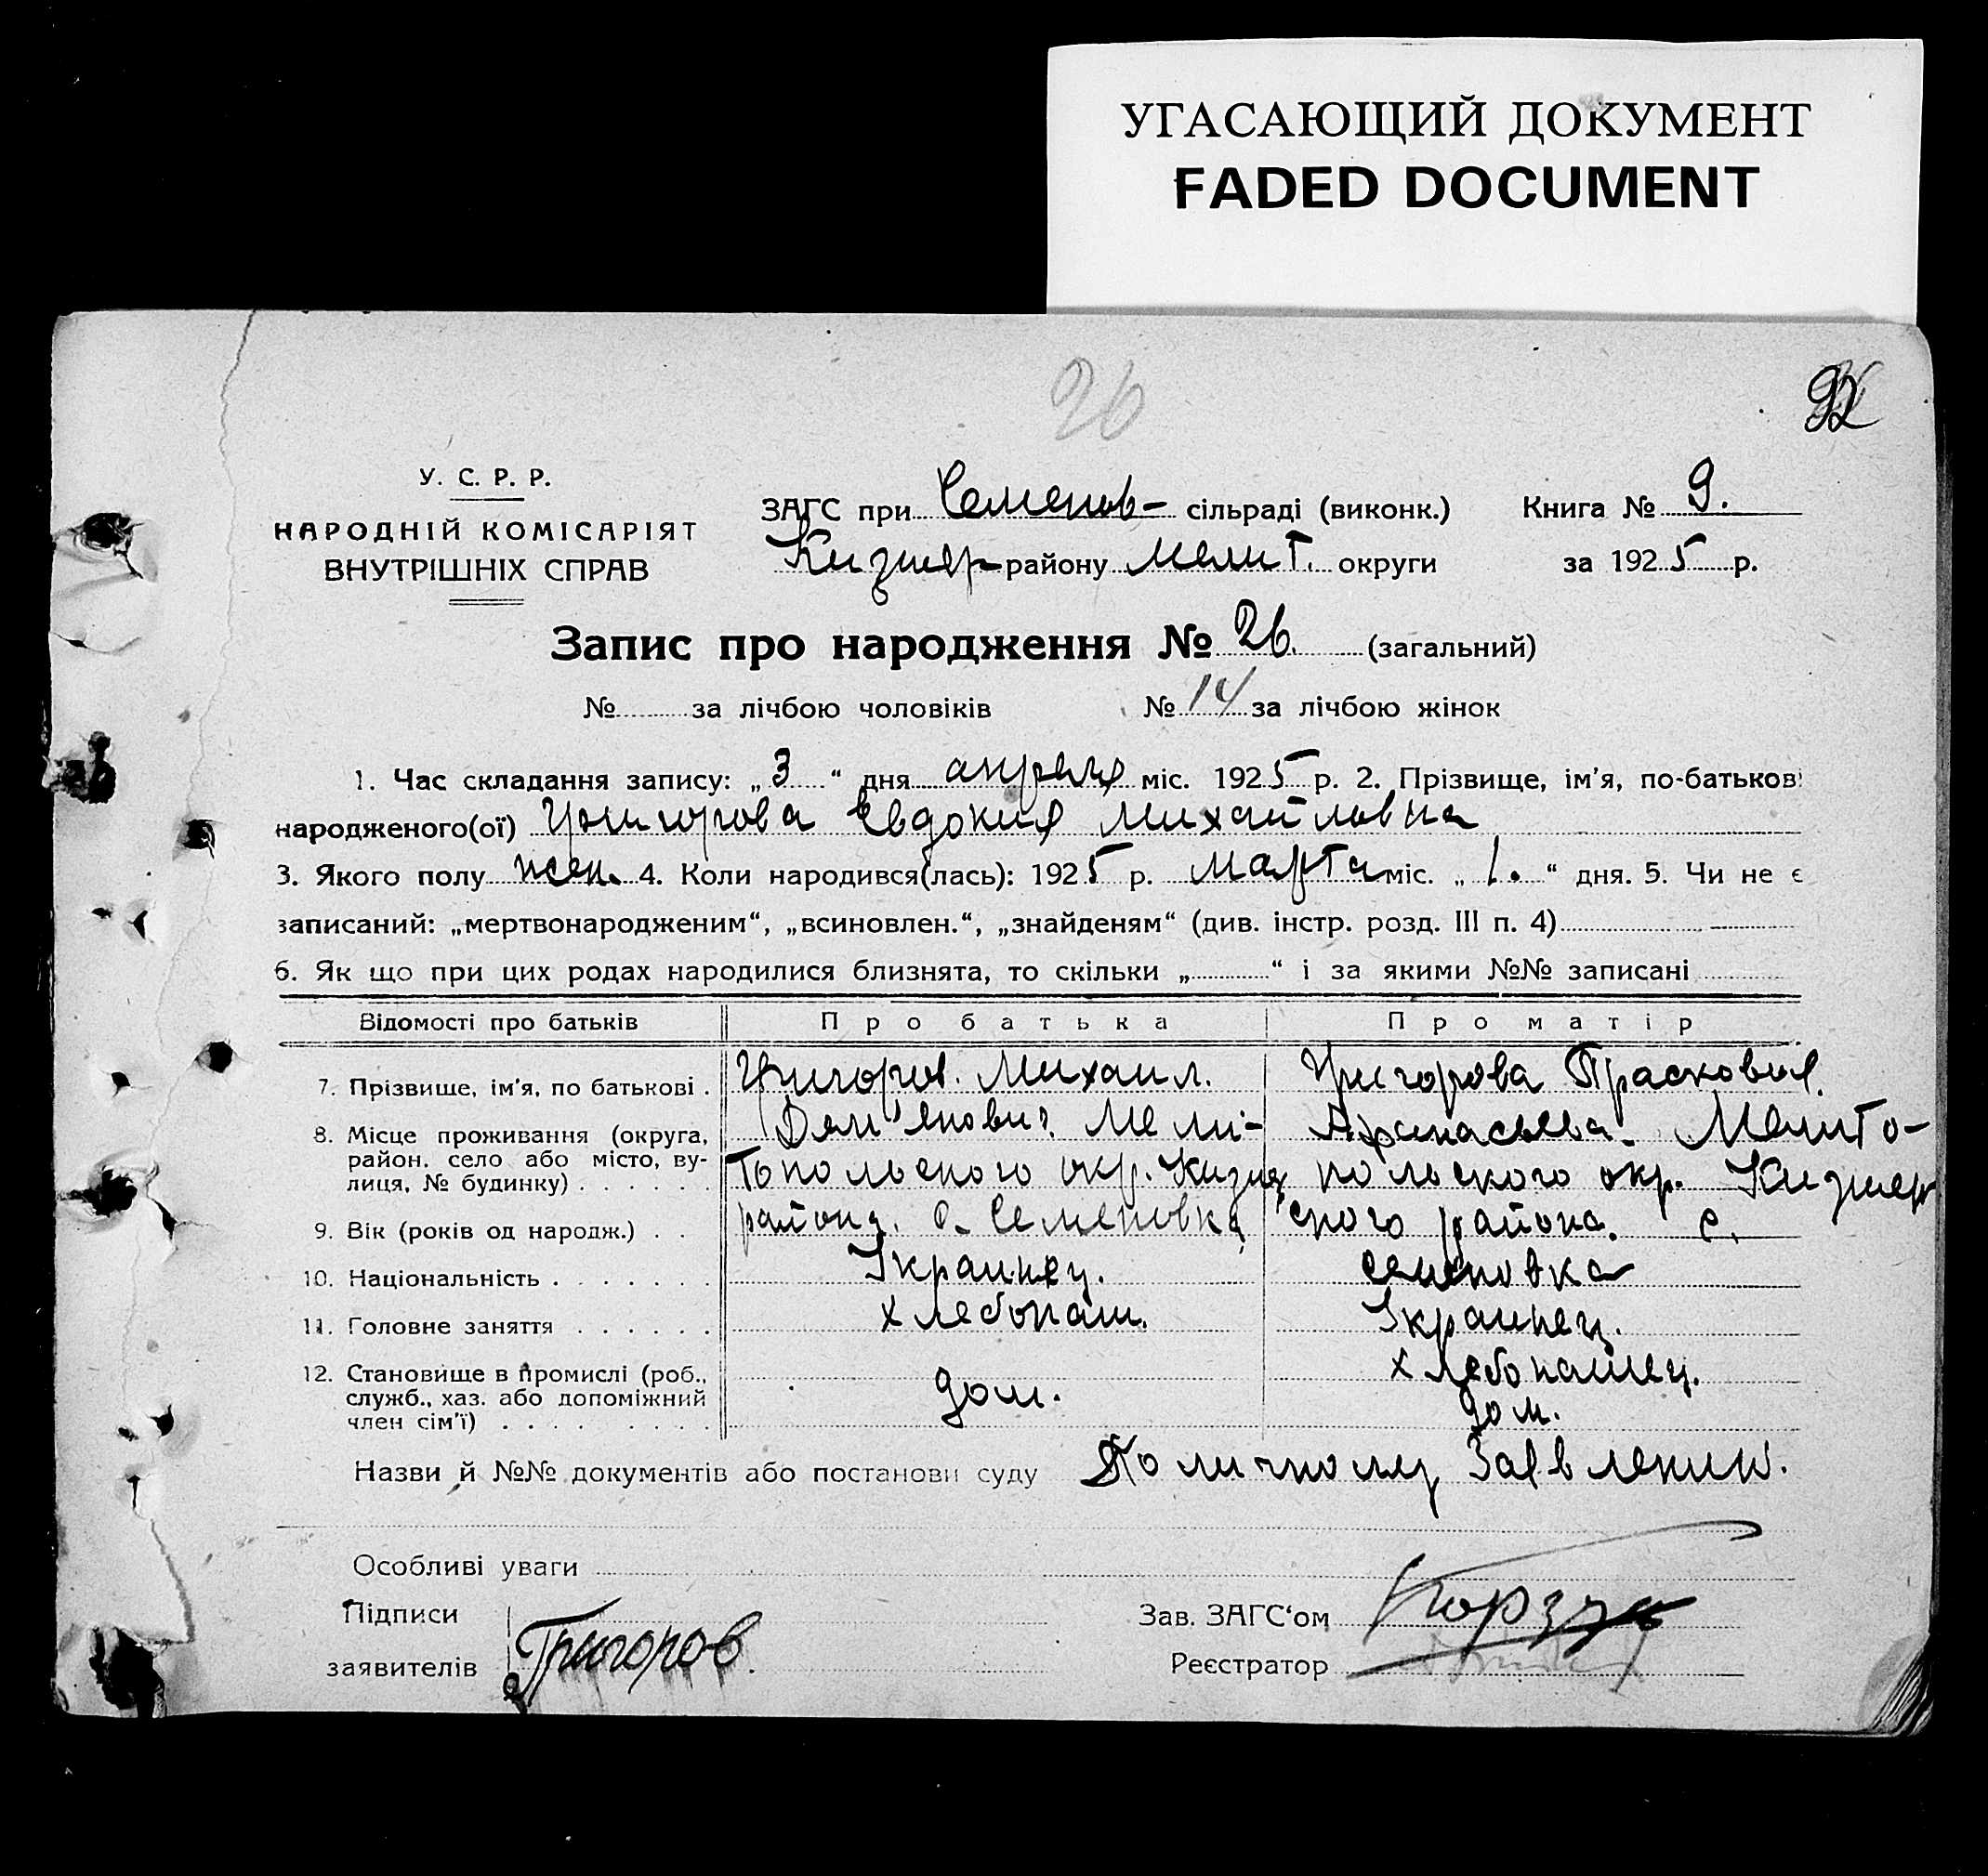 УГАСАЮЩИЙ ДОКУМЕНТ
FADED DOCUMENT
26
92
У. С. Р. Р.
НАРОДНІЙ КОМІСАРІЯТ
ВНУТРІШНІХ СПРАВ
ЗАГС при Семенов- сільраді (виконк.) Книга № 9.
Кизиер району Мелит. округи за 1925 р.
Запис про народження № 26. (загальний)
№ за лічбою чоловіків № 14 за лічбою жінок
1. Час складання запису: „3“ дня апреля міс. 1925 р. 2. Прізвище, ім'я, по-батькові
народженого(ої) Григорова Евдокия Михайловна
3. Якого полу жен. 4. Коли народився(лась): 1925 р. марта міс. „1.“ дня. 5. Чи не є
записаний: „мертвонародженим“, „всиновлен.“, „знайденям“ (див. інстр. розд. III п. 4)
6. Як що при цих родах народилися близнята, то скільки „ “ і за якими №№ записані
Відомості про батьків Про батька Про матір
7. Прізвище, ім'я, по батькові . Григоров. Михаил. Григорова Прасковия.
8. Місце проживання (округа, Дем'янович. Мели- Афанасьева. Мелито-
район, село або місто, ву- топольского окр. Кизие польского окр. Кизиер
лиця, № будинку) . . . . . .
9. Вік (років од народж.) . . района. с. Семеновка ского района. с.
10. Національність . . . . . . . Украинец. семеновка
11. Головне заняття . . . . . . хлебопаш. Украинец.
12. Становище в промислі (роб., хлебопашец.
служб., хаз. або допоміжний дом. дом.
член сім'ї) . . . . . . . .
Назви й №№ документів або постанови суду По личному Заявлению.
Особливі уваги
Підписи
заявителів Григоров.
Зав. ЗАГС'ом
Реєстратор